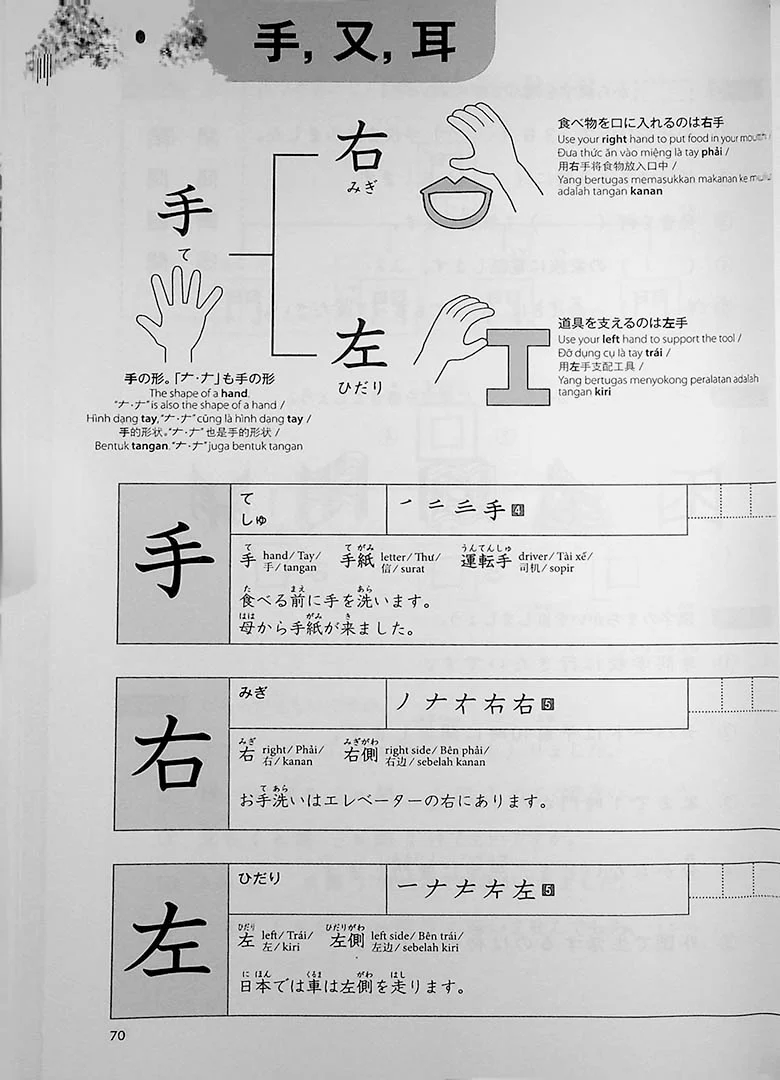 手, 又, 耳
右
みぎ
食べ物を口に入れるのは右手
Use your right hand to put food in your mouth /
Đưa thức ăn vào miệng là tay phải /
用右手将食物放入口中 /
Yang bertugas memasukkan makanan ke mulut
adalah tangan kanan
手
て
左
ひだり
道具を支えるのは左手
Use your left hand to support the tool /
Đỡ dụng cụ là tay trái /
用左手支配工具 /
Yang bertugas menyokong peralatan adalah
tangan kiri
手の形。「ナ・ナ」も手の形
The shape of a hand.
"ナ・ナ" is also the shape of a hand /
Hình dạng tay, "ナ・ナ" cũng là hình dạng tay /
手的形状。"ナ・ナ" 也是手的形状 /
Bentuk tangan. "ナ・ナ" juga bentuk tangan
手
て
しゅ
手 4
て
手 hand/ Tay/ 手/ tangan
てがみ
手紙 letter/ Thư/ 信/ surat
うんてんしゅ
運転手 driver/ Tài xế/ 司机/ sopir
た まえ て あら
食べる前に手を洗います。
はは てがみ き
母から手紙が来ました。
右
みぎ
ノ ナ 右 5
みぎ
右 right/ Phải/ 右/ kanan
みぎがわ
右側 right side/ Bên phải/ 右边/ sebelah kanan
て あら
お手洗いはエレベーターの右にあります。
左
ひだり
一 ナ 左 5
ひだり
左 left/ Trái/ 左/ kiri
ひだりがわ
左側 left side/ Bên trái/ 左边/ sebelah kiri
に ほん くるま がわ はし
日本では車は左側を走ります。
70